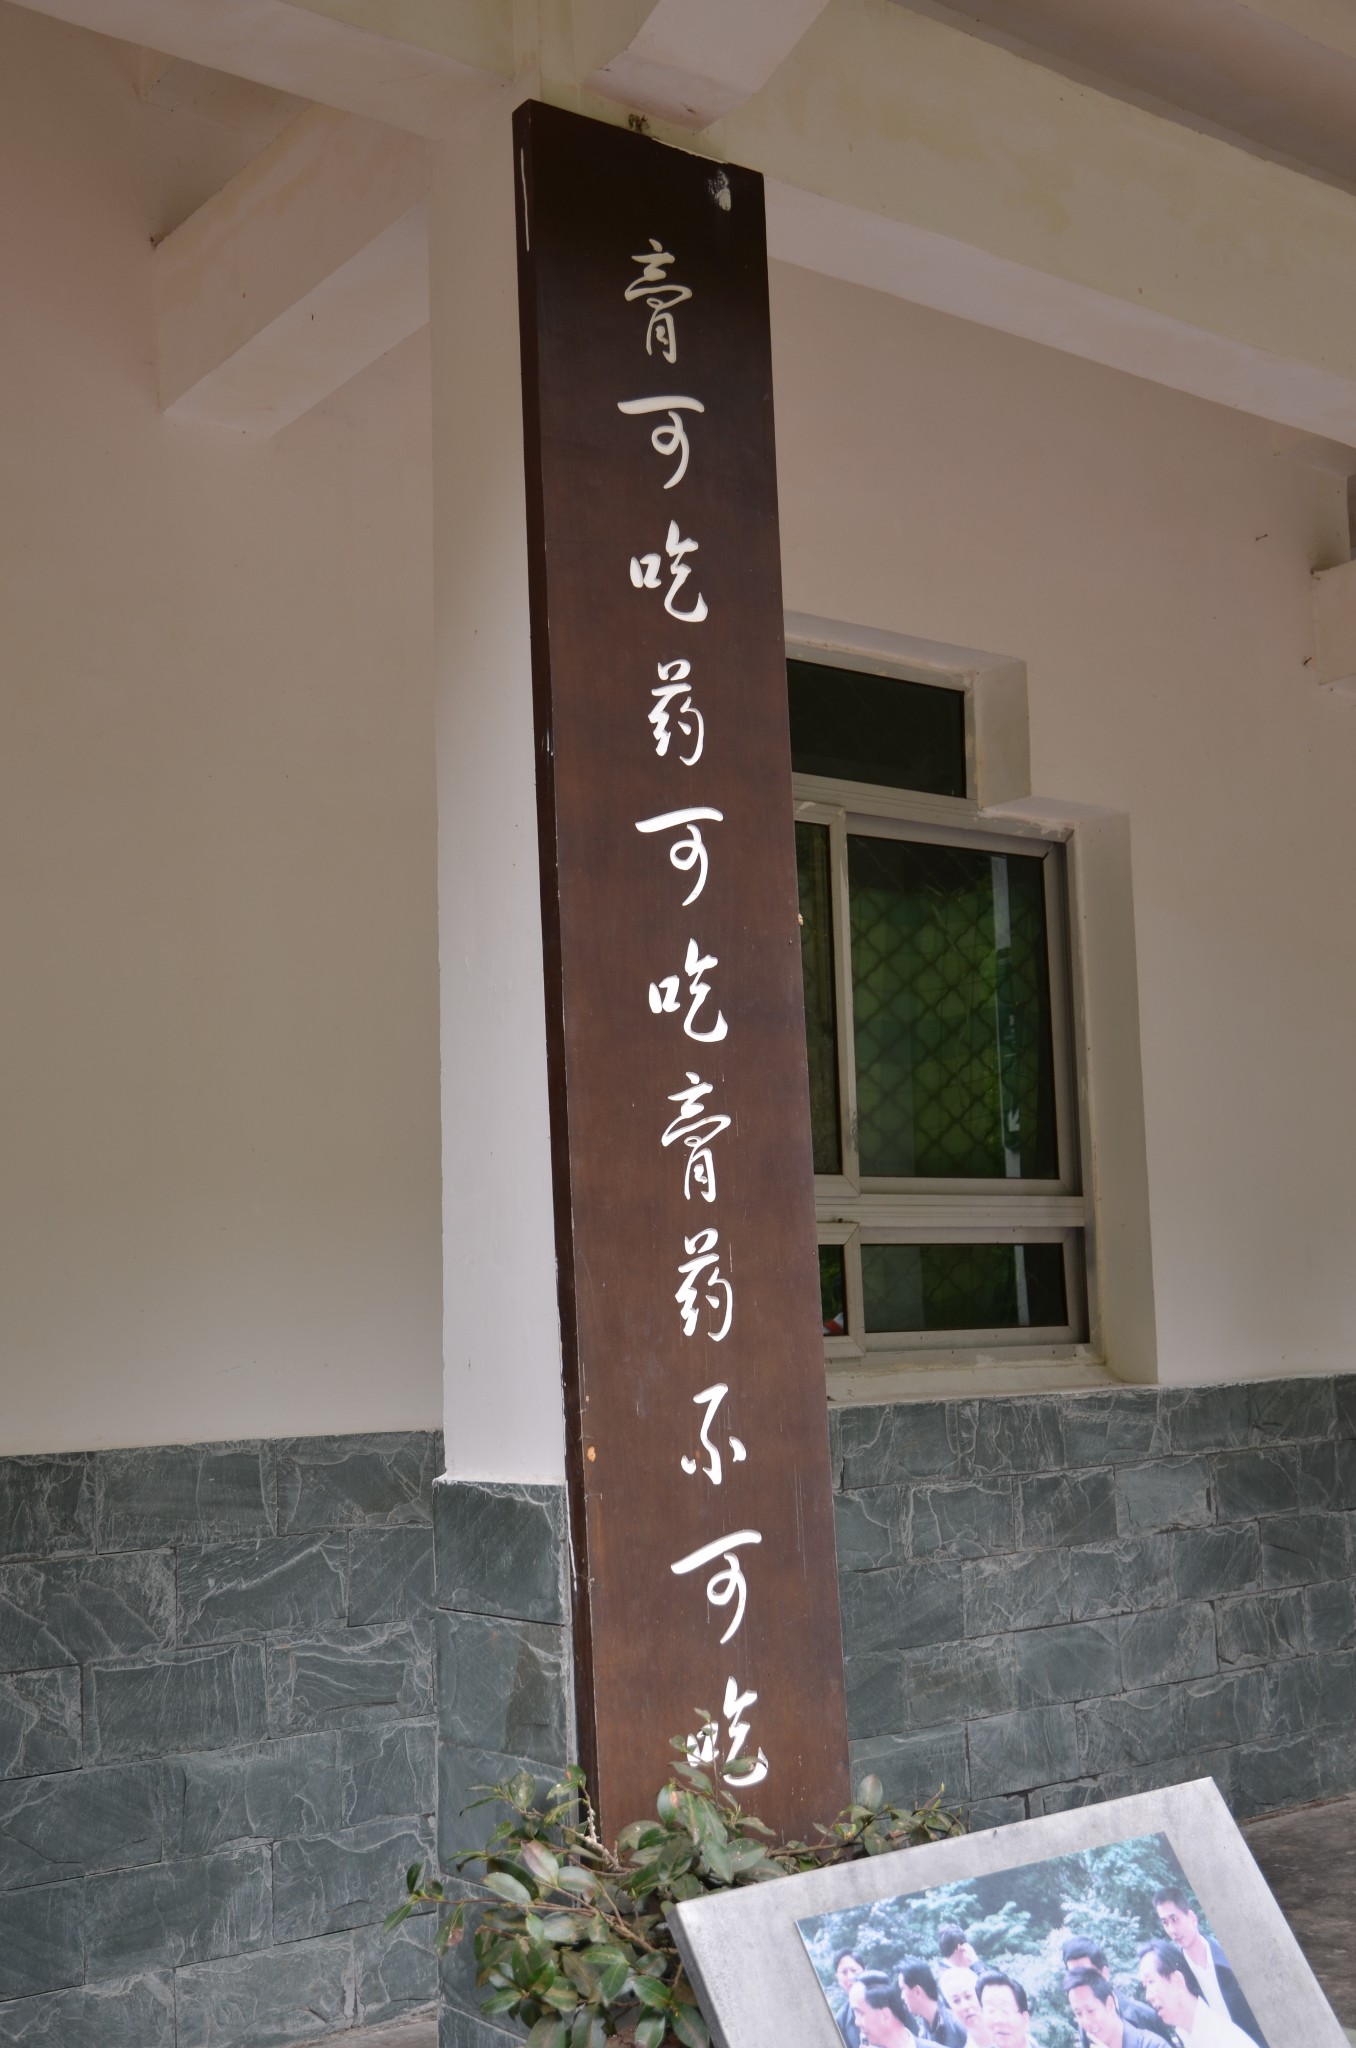 膏可吃药可吃膏药不可吃